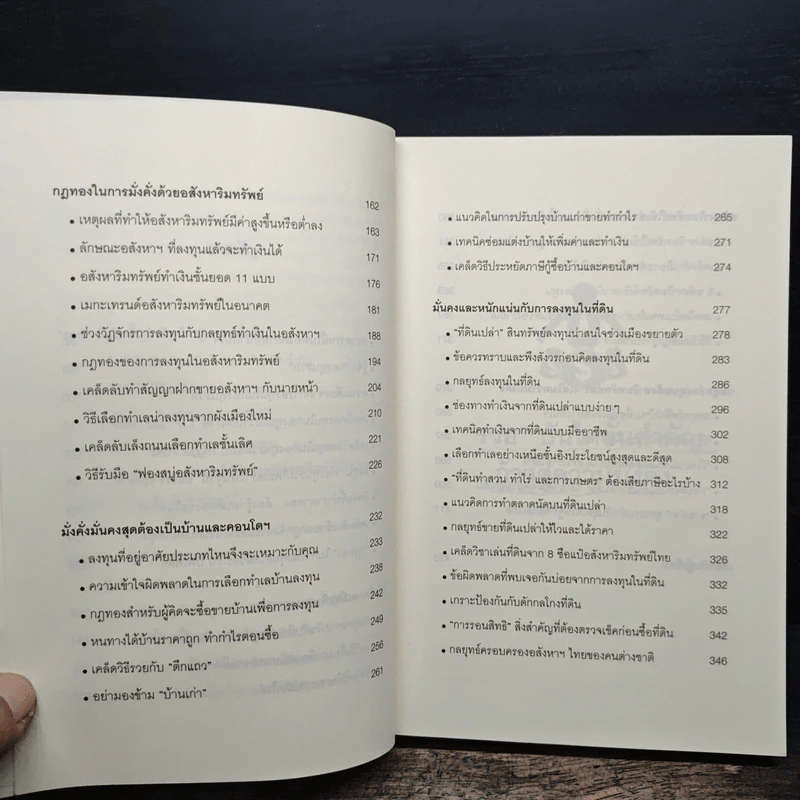 กฎทองในการมั่งคั่งด้วยอสังหาริมทรัพย์ 162
• เหตุผลที่ทำให้อสังหาริมทรัพย์มีค่าสูงขึ้นหรือต่ำลง 163
• ลักษณะอสังหาฯ ที่ลงทุนแล้วจะทำเงินได้ 171
• อสังหาริมทรัพย์ทำเงินชั้นยอด 11 แบบ 176
• เมกะเทรนด์อสังหาริมทรัพย์ในอนาคต 181
• ช่วงวัฏจักรการลงทุนกับกลยุทธ์ทำเงินในอสังหาฯ 188
• กฎทองของการลงทุนในอสังหาริมทรัพย์ 194
• เคล็ดลับทำสัญญาฝากขายอสังหาฯ กับนายหน้า 204
• วิธีเลือกทำเลน่าลงทุนจากผังเมืองใหม่ 210
• เคล็ดลับเล็งถนนเลือกทำเลชั้นเลิศ 221
• วิธีรับมือ "ฟองสบู่อสังหาริมทรัพย์" 226
มั่งคั่งมั่นคงสุดต้องเป็นบ้านและคอนโดฯ 232
• ลงทุนที่อยู่อาศัยประเภทไหนจึงจะเหมาะกับคุณ 233
• ความเข้าใจผิดพลาดในการเลือกทำเลบ้านลงทุน 238
• กฎทองสำหรับผู้คิดจะซื้อขายบ้านเพื่อการลงทุน 242
• หนทางได้บ้านราคาถูก ทำกำไรตอนซื้อ 249
• เคล็ดวิธีรวยกับ "ตึกแถว" 256
• อย่ามองข้าม "บ้านเก่า" 261
• แนวคิดในการปรับปรุงบ้านเก่าขายทำกำไร 265
• เทคนิคซ่อมแต่งบ้านให้เพิ่มค่าและทำเงิน 271
• เคล็ดวิธีประหยัดภาษีกู้ซื้อบ้านและคอนโดฯ 274
มั่นคงและหนักแน่นกับการลงทุนในที่ดิน 277
• "ที่ดินเปล่า" สินทรัพย์ลงทุนน่าสนใจช่วงเมืองขยายตัว 278
• ข้อควรทราบและพึงสังวรก่อนคิดลงทุนในที่ดิน 283
• กลยุทธ์ลงทุนในที่ดิน 286
• ช่องทางทำเงินจากที่ดินเปล่าแบบง่ายๆ 296
• เทคนิคทำเงินจากที่ดินแบบมืออาชีพ 302
• เลือกทำเลอย่างเหนือชั้นอิงประโยชน์สูงสุดและดีสุด 308
• "ที่ดินทำสวน ทำไร่ และการเกษตร" ต้องเสียภาษีอะไรบ้าง 312
• แนวคิดการทำตลาดนัดบนที่ดินเปล่า 318
• กลยุทธ์ขายที่ดินเปล่าให้ไวและได้ราคา 322
• เคล็ดวิชาเล่นที่ดินจาก 8 ซือแป๋อสังหาริมทรัพย์ไทย 326
• ข้อผิดพลาดที่พบเจอกันบ่อยจากการลงทุนในที่ดิน 332
• เกราะป้องกันกับดักกลโกงที่ดิน 335
• "การรอนสิทธิ" สิ่งสำคัญที่ต้องตรวจเช็คก่อนซื้อที่ดิน 342
• กลยุทธ์ครอบครองอสังหาฯ ไทยของคนต่างชาติ 346